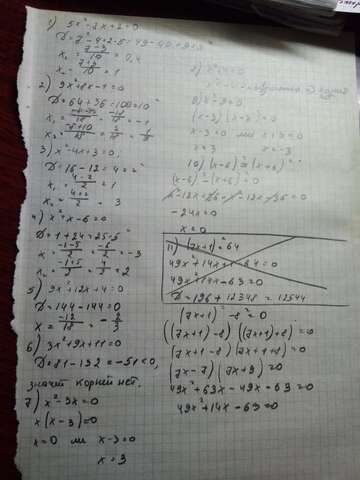 1) 5x²-7x+2=0
D=7²-4·2·5=49-40=9=3²
x₁=(7-3)/10=0,4
x₂=(7+3)/10=1
2) 9x²+8x-1=0
D=64+36=100=10²
x₁=(-8-10)/18=-18/18=-1
x₂=(-8+10)/18=2/18=1/9
3) x²-4x+3=0;
D=16-12=4=2²
x₁=(4-2)/2=1
x₂=(4+2)/2=3
4) x²+x-6=0
D=1+24=25=5²
x=(-1-5)/2=-6/2=-3
x=(-1+5)/2=4/2=2
5) 9x²+12x+4=0
D=144-144=0
x=-12/18=-2/3
6) 3x²+9x+11=0
D=81-132=-51<0,
значит корней нет.
7) x²-3x=0
x(x-3)=0
x=0 или x-3=0
x=3
(x-3)(x+3)=0
x-3=0 или x+3=0
x=3 x=-3
10) (x-6)²=(x+6)²
(x-6)²-(x+6)²=0
x²-12x+36-x²-12x-36=0
-24x=0
x=0
11) (7x+1)²=64
49x²+14x+1-64=0
49x²+14x-63=0
D=196+12348=12544
(7x+1)²-8²=0
((7x+1)-8)((7x+1)+8)=0
(7x+1-8)(7x+1+8)=0
(7x-7)(7x+9)=0
49x²+63x-49x-63=0
49x²+14x-63=0